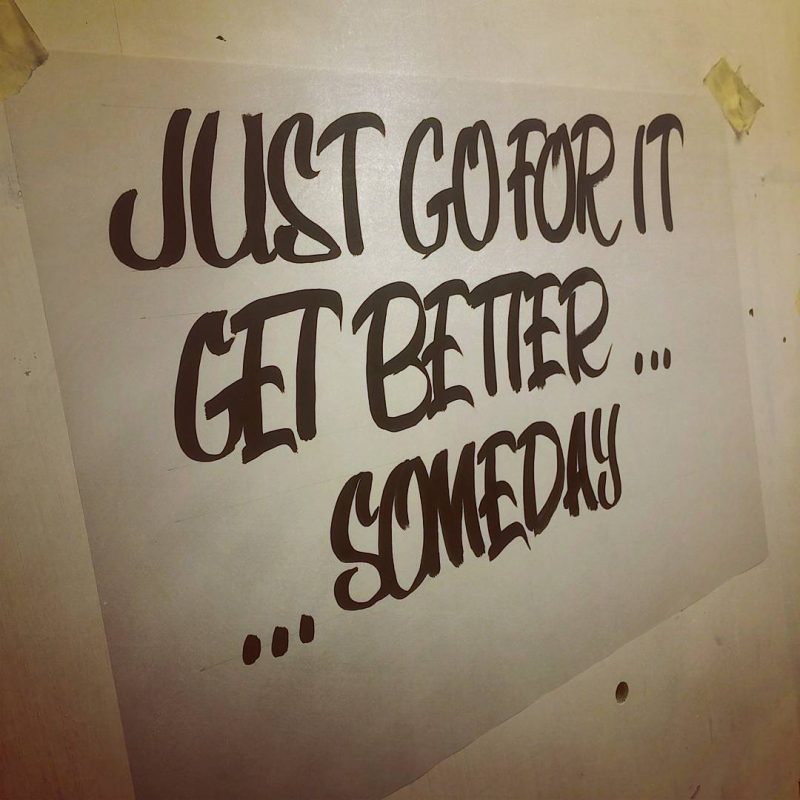 JUST GO FOR IT
GET BETTER ...
... SOMEDAY